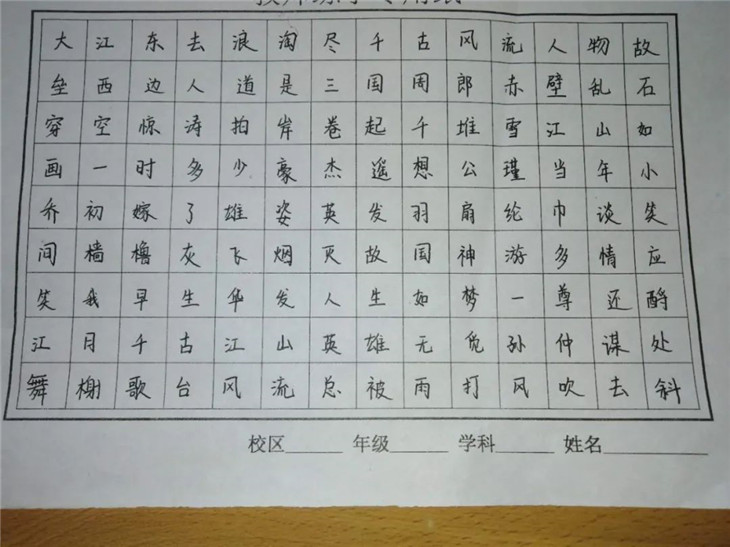 大江东去浪淘尽千古风流人物故
垒西边人道是三国周郎赤壁乱石
穿空惊涛拍岸卷起千堆雪江山如
画一时多少豪杰遥想公瑾当年小
乔初嫁了雄姿英发羽扇纶巾谈笑
间樯橹灰飞烟灭故国神游多情应
笑我早生华发人生如梦一尊还酹
江月千古江山英雄无觅孙仲谋处
舞榭歌台风流总被雨打风吹去斜
校区______ 年级______ 学科______ 姓名__________